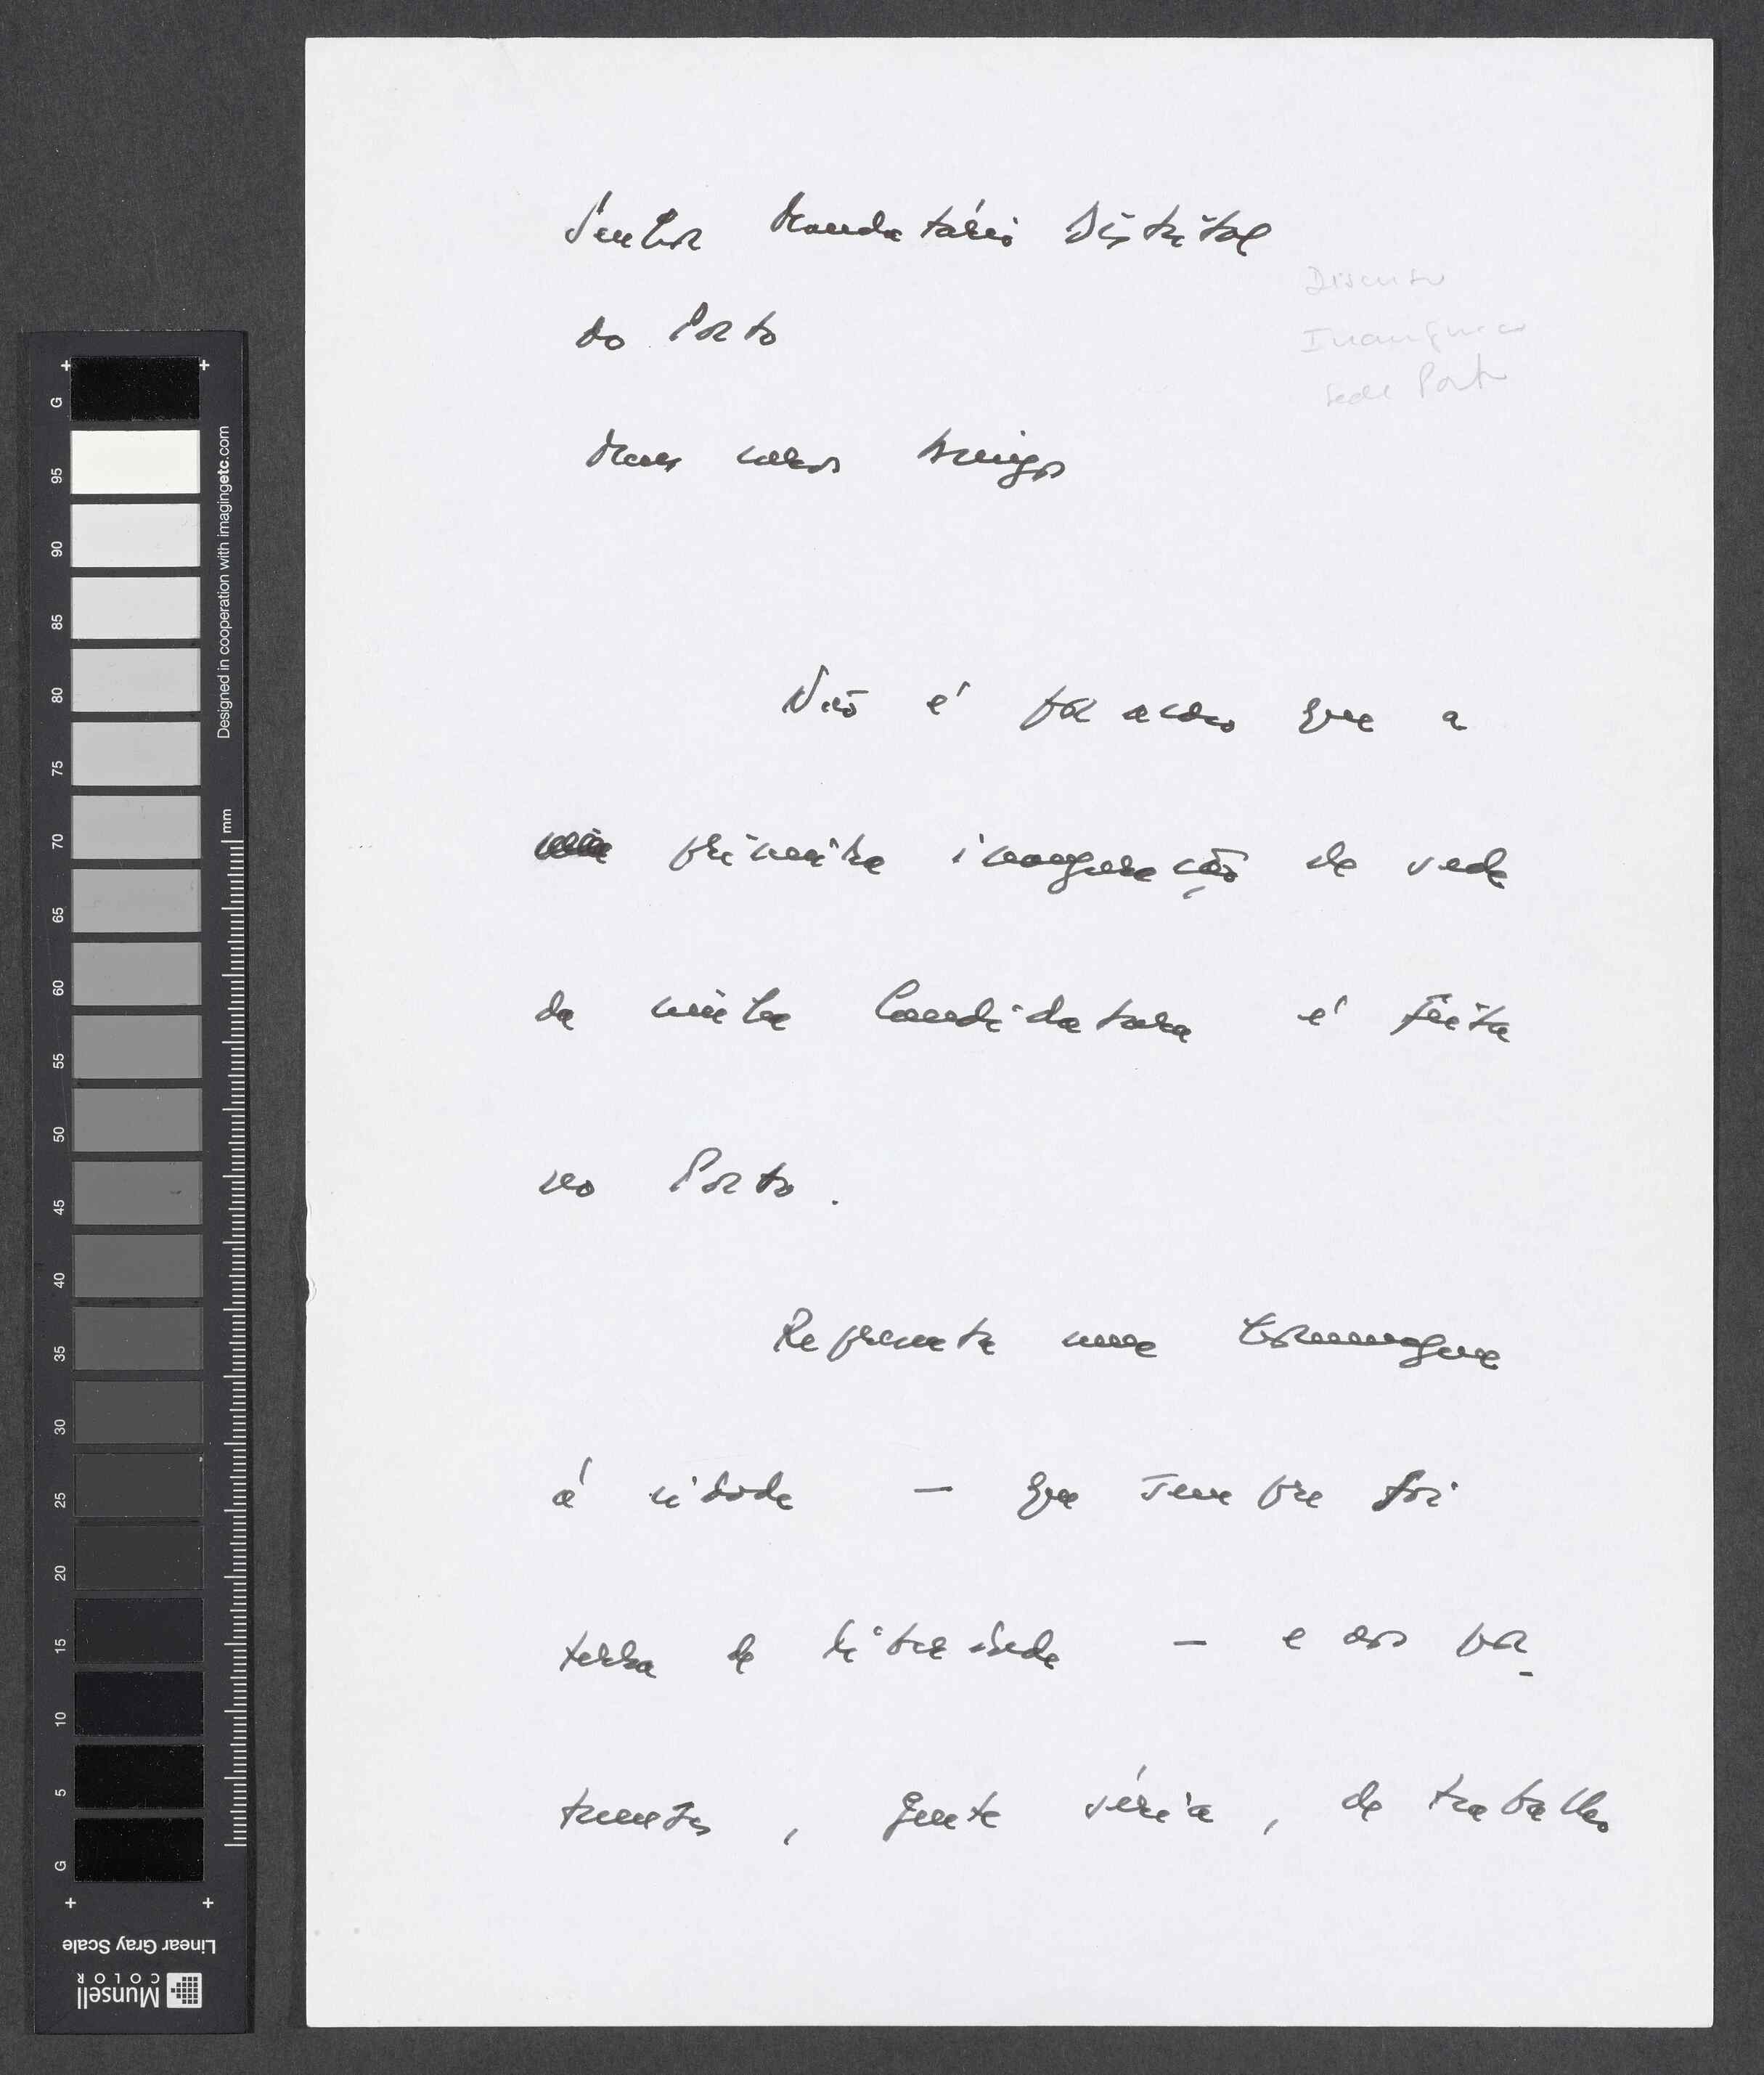 Senhor Mandatário Distrital
do Porto
Discurso
Inauguração
Sede Porto
Meus caros Amigos
Não é por acaso que a
primeira inauguração de sede
da minha Candidatura é feita
no Porto.
Representa uma homenagem
à cidade — que sempre foi
terra de liberdade — e aos por-
tuenses, gente séria, de trabalho
G
95
90
85
80
75
70
65
60
55
50
45
40
35
30
25
20
15
10
5
G
mm
Designed in cooperation with imagingetc.com
Linear Gray Scale
Munsell
COLOR